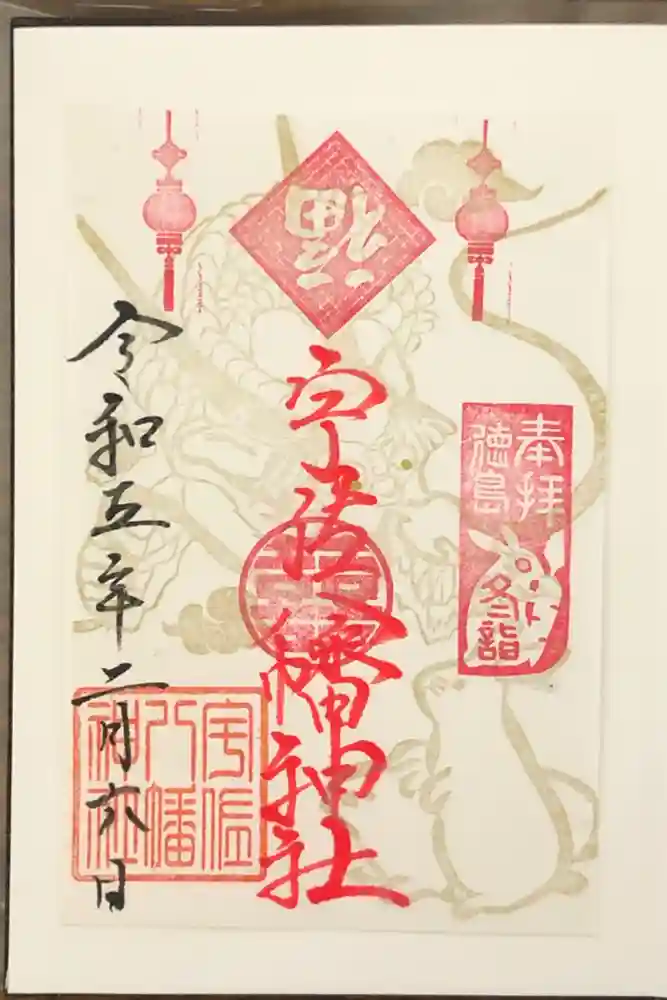 奉拝
徳島
冬詣
福
宇佐八幡神社
宇佐
八幡
神社
令和五年二月六日